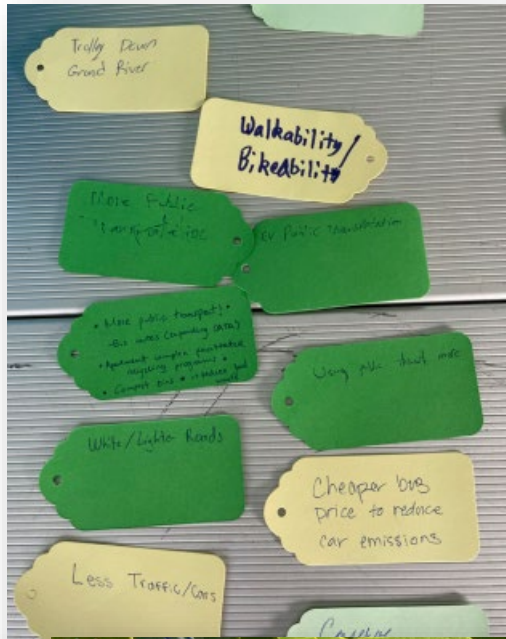 Trolly Down
Grand River
Walkability/
Bikeability
More Public
Transportation
EV Public Transportation
• More public transport! •
-Bus routes (expanding CATA)
• Apartment complex
recycling programs •
• Compost bins
Using public transit more
White/Lighter Roads
Cheaper bus
price to reduce
car emissions
Less Traffic/Cars